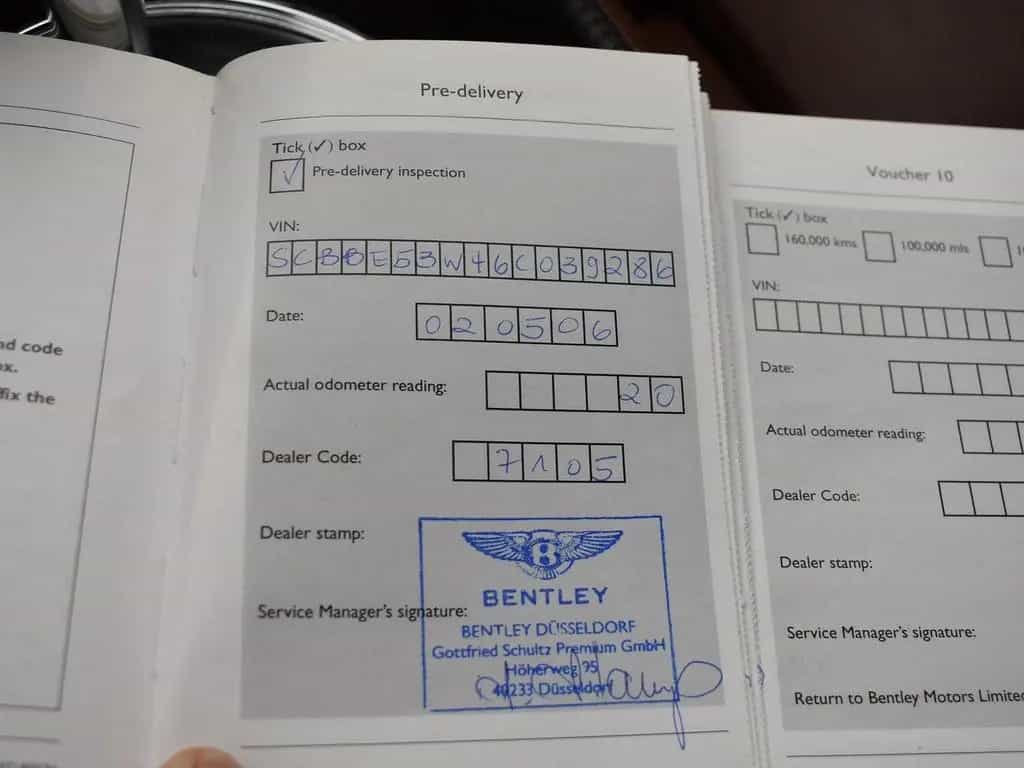 Pre-delivery
Tick (✓) box
✓ Pre-delivery inspection
VIN:
SCBBE53W46C039286
Date:
020506
Actual odometer reading:
20
Dealer Code:
7105
Dealer stamp:
B
BENTLEY
Service Manager's signature:
BENTLEY DÜSSELDORF
Gottfried Schultz Premium GmbH
Höherweg 95
40233 Düsseldorf
Voucher 10
Tick (✓) box
160,000 kms
100,000 mls
VIN:
Date:
Actual odometer reading:
Dealer Code:
Dealer stamp:
Service Manager's signature:
Return to Bentley Motors Limite
nd code
ox.
ffix the